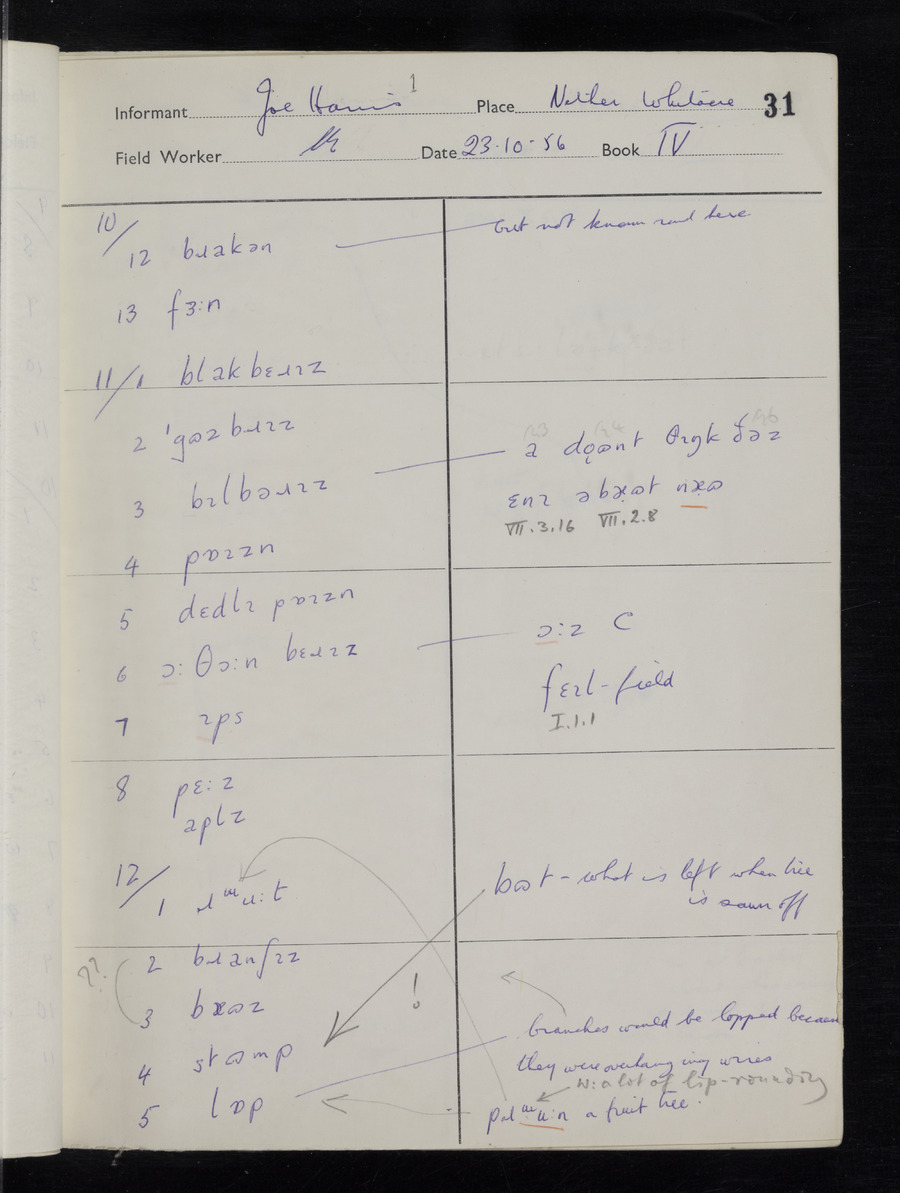 1
Informant Joe Harris Place Nether Whitacre 31
Field Worker Date 23-10-56 Book IV
10/
12 bɹakən but not known round here
13 fɜ:n
11/1 blakbɛɹɪz
2 'gɷzbɹɪz
3 bɪlbəɹɪz
a dọɷnt θɪŋk ðəz
ɛnɪ əbx̣ɷt nx̣ɷ
VII.3.16 VII.2.8
4 pɒɪzn
5 dɛdlɪ pɒɪzn
6 ɔ: θɔ:n bɛɹɪz
ɔ:z C
fɛɪl-field
I.1.1
7 ɪps
8 pɛ:z
aplz
12/
1 ɹɯu:t
bɷt - what is left when tree
is sawn off
2 bɹanʃɪz
??
3 bxɷz
!
4 stɷmp
5 lɒp
branches would be lopped because
they were overhanging wires
w: a lot of lip-rounding
pɹɯu:n a fruit tree.